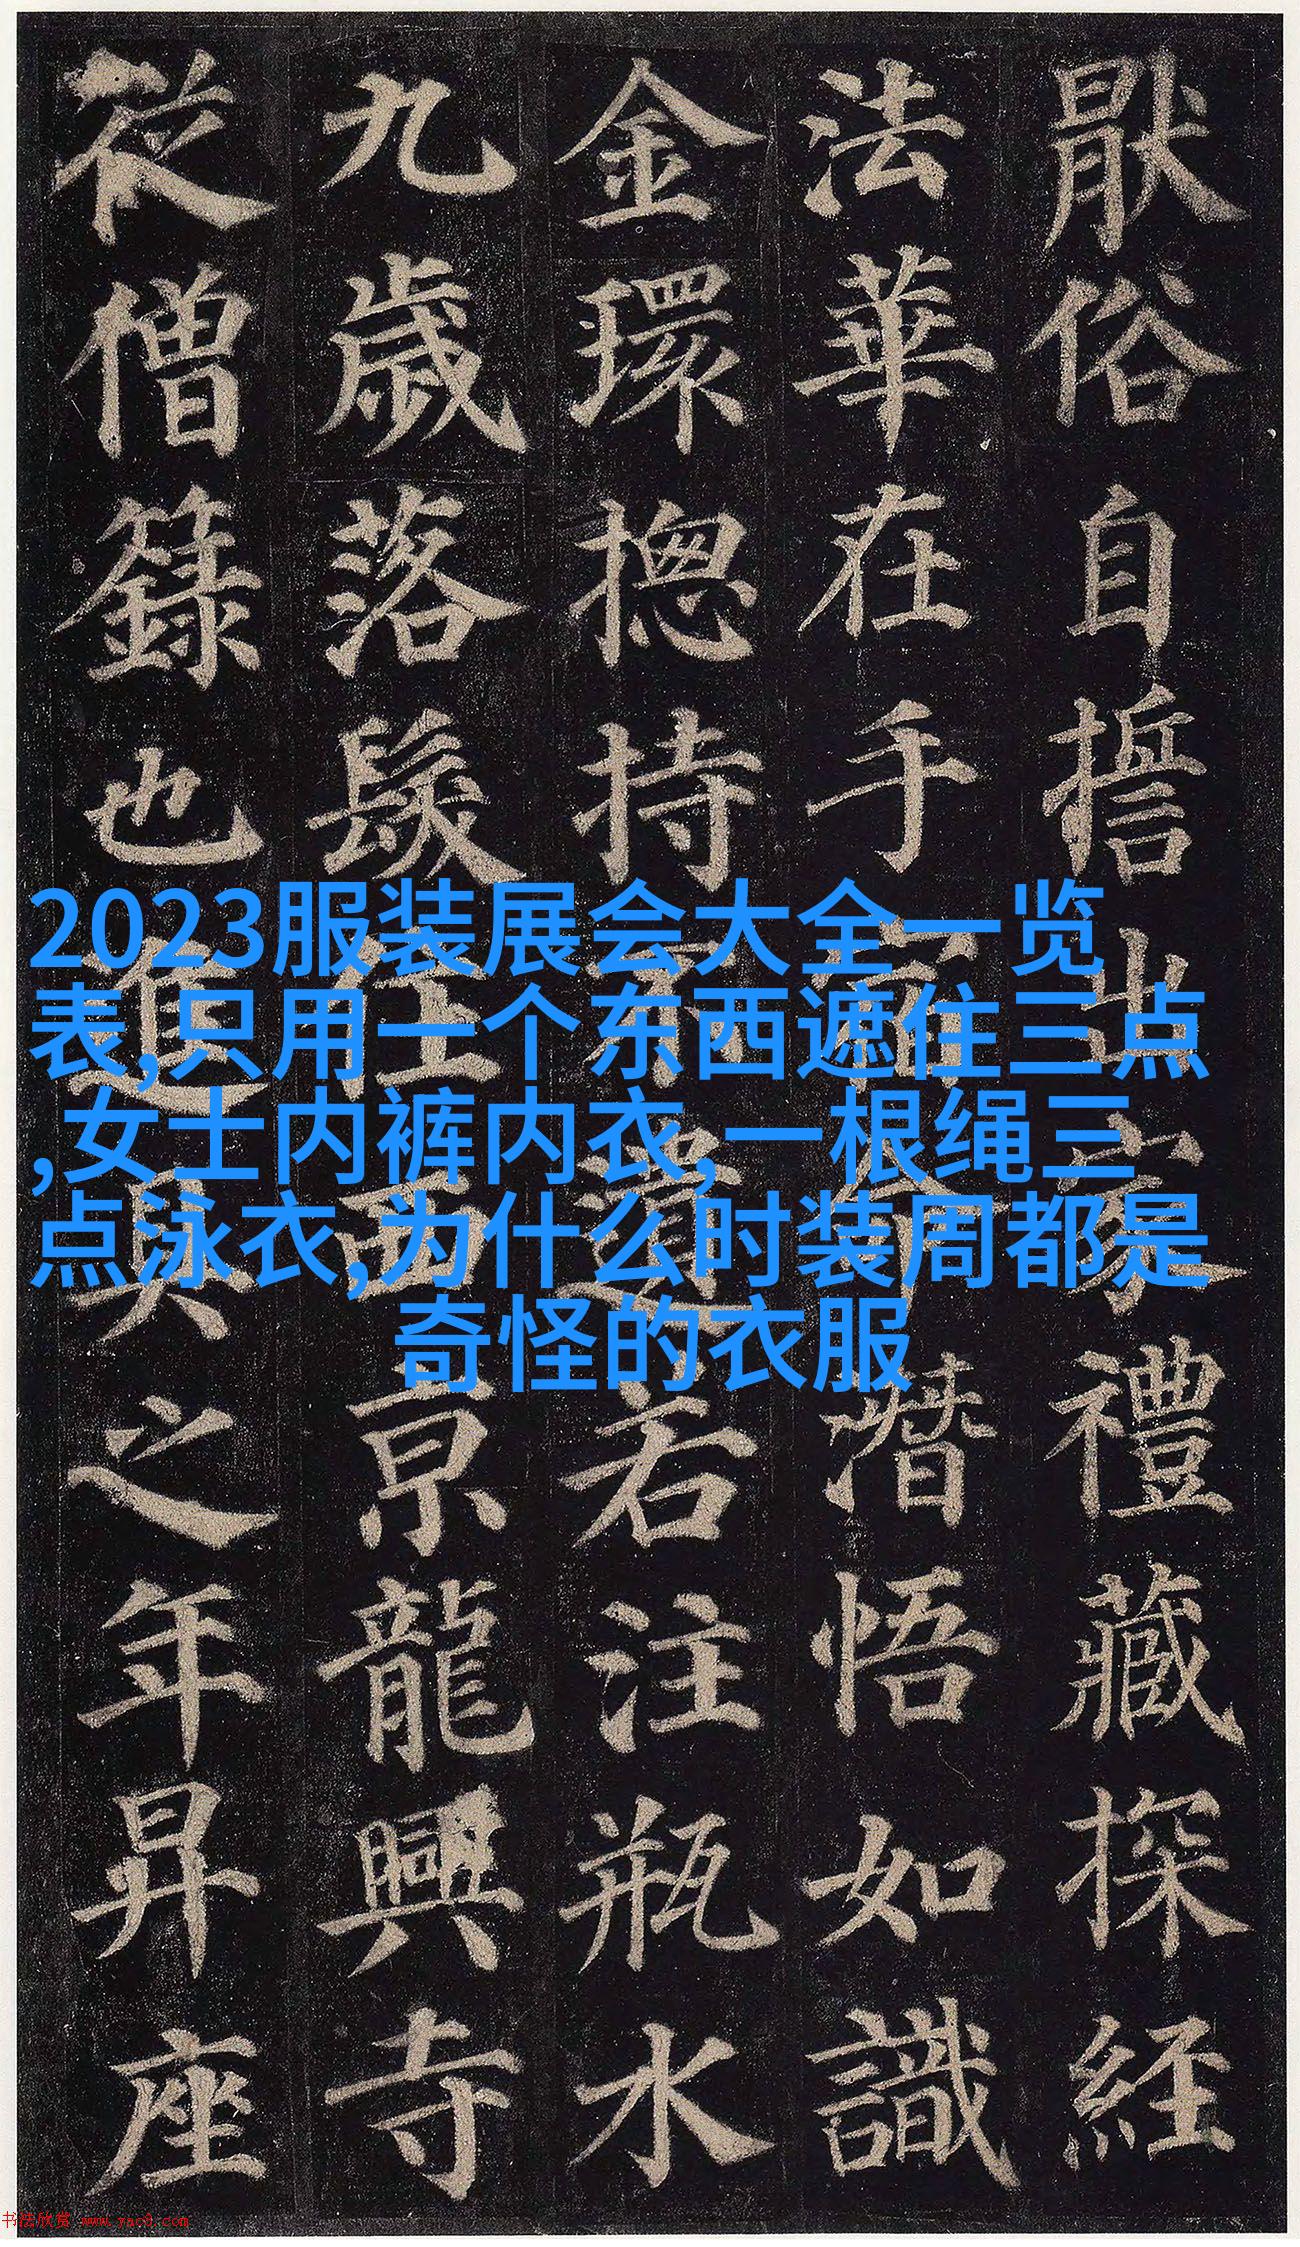 猒俗自誓出家禮藏探經
法華在手宿命潛悟如識
金環揔持不遺若注瓶水
九歲落髮住西京龍興寺
從僧籙也進具之年昇座
2023服装展会大全一览
表,只用一个东西遮住三点
,女士内裤内衣,一根绳三
点泳衣,为什么时装周都是
奇怪的衣服
书法欣赏 www.yac8.com